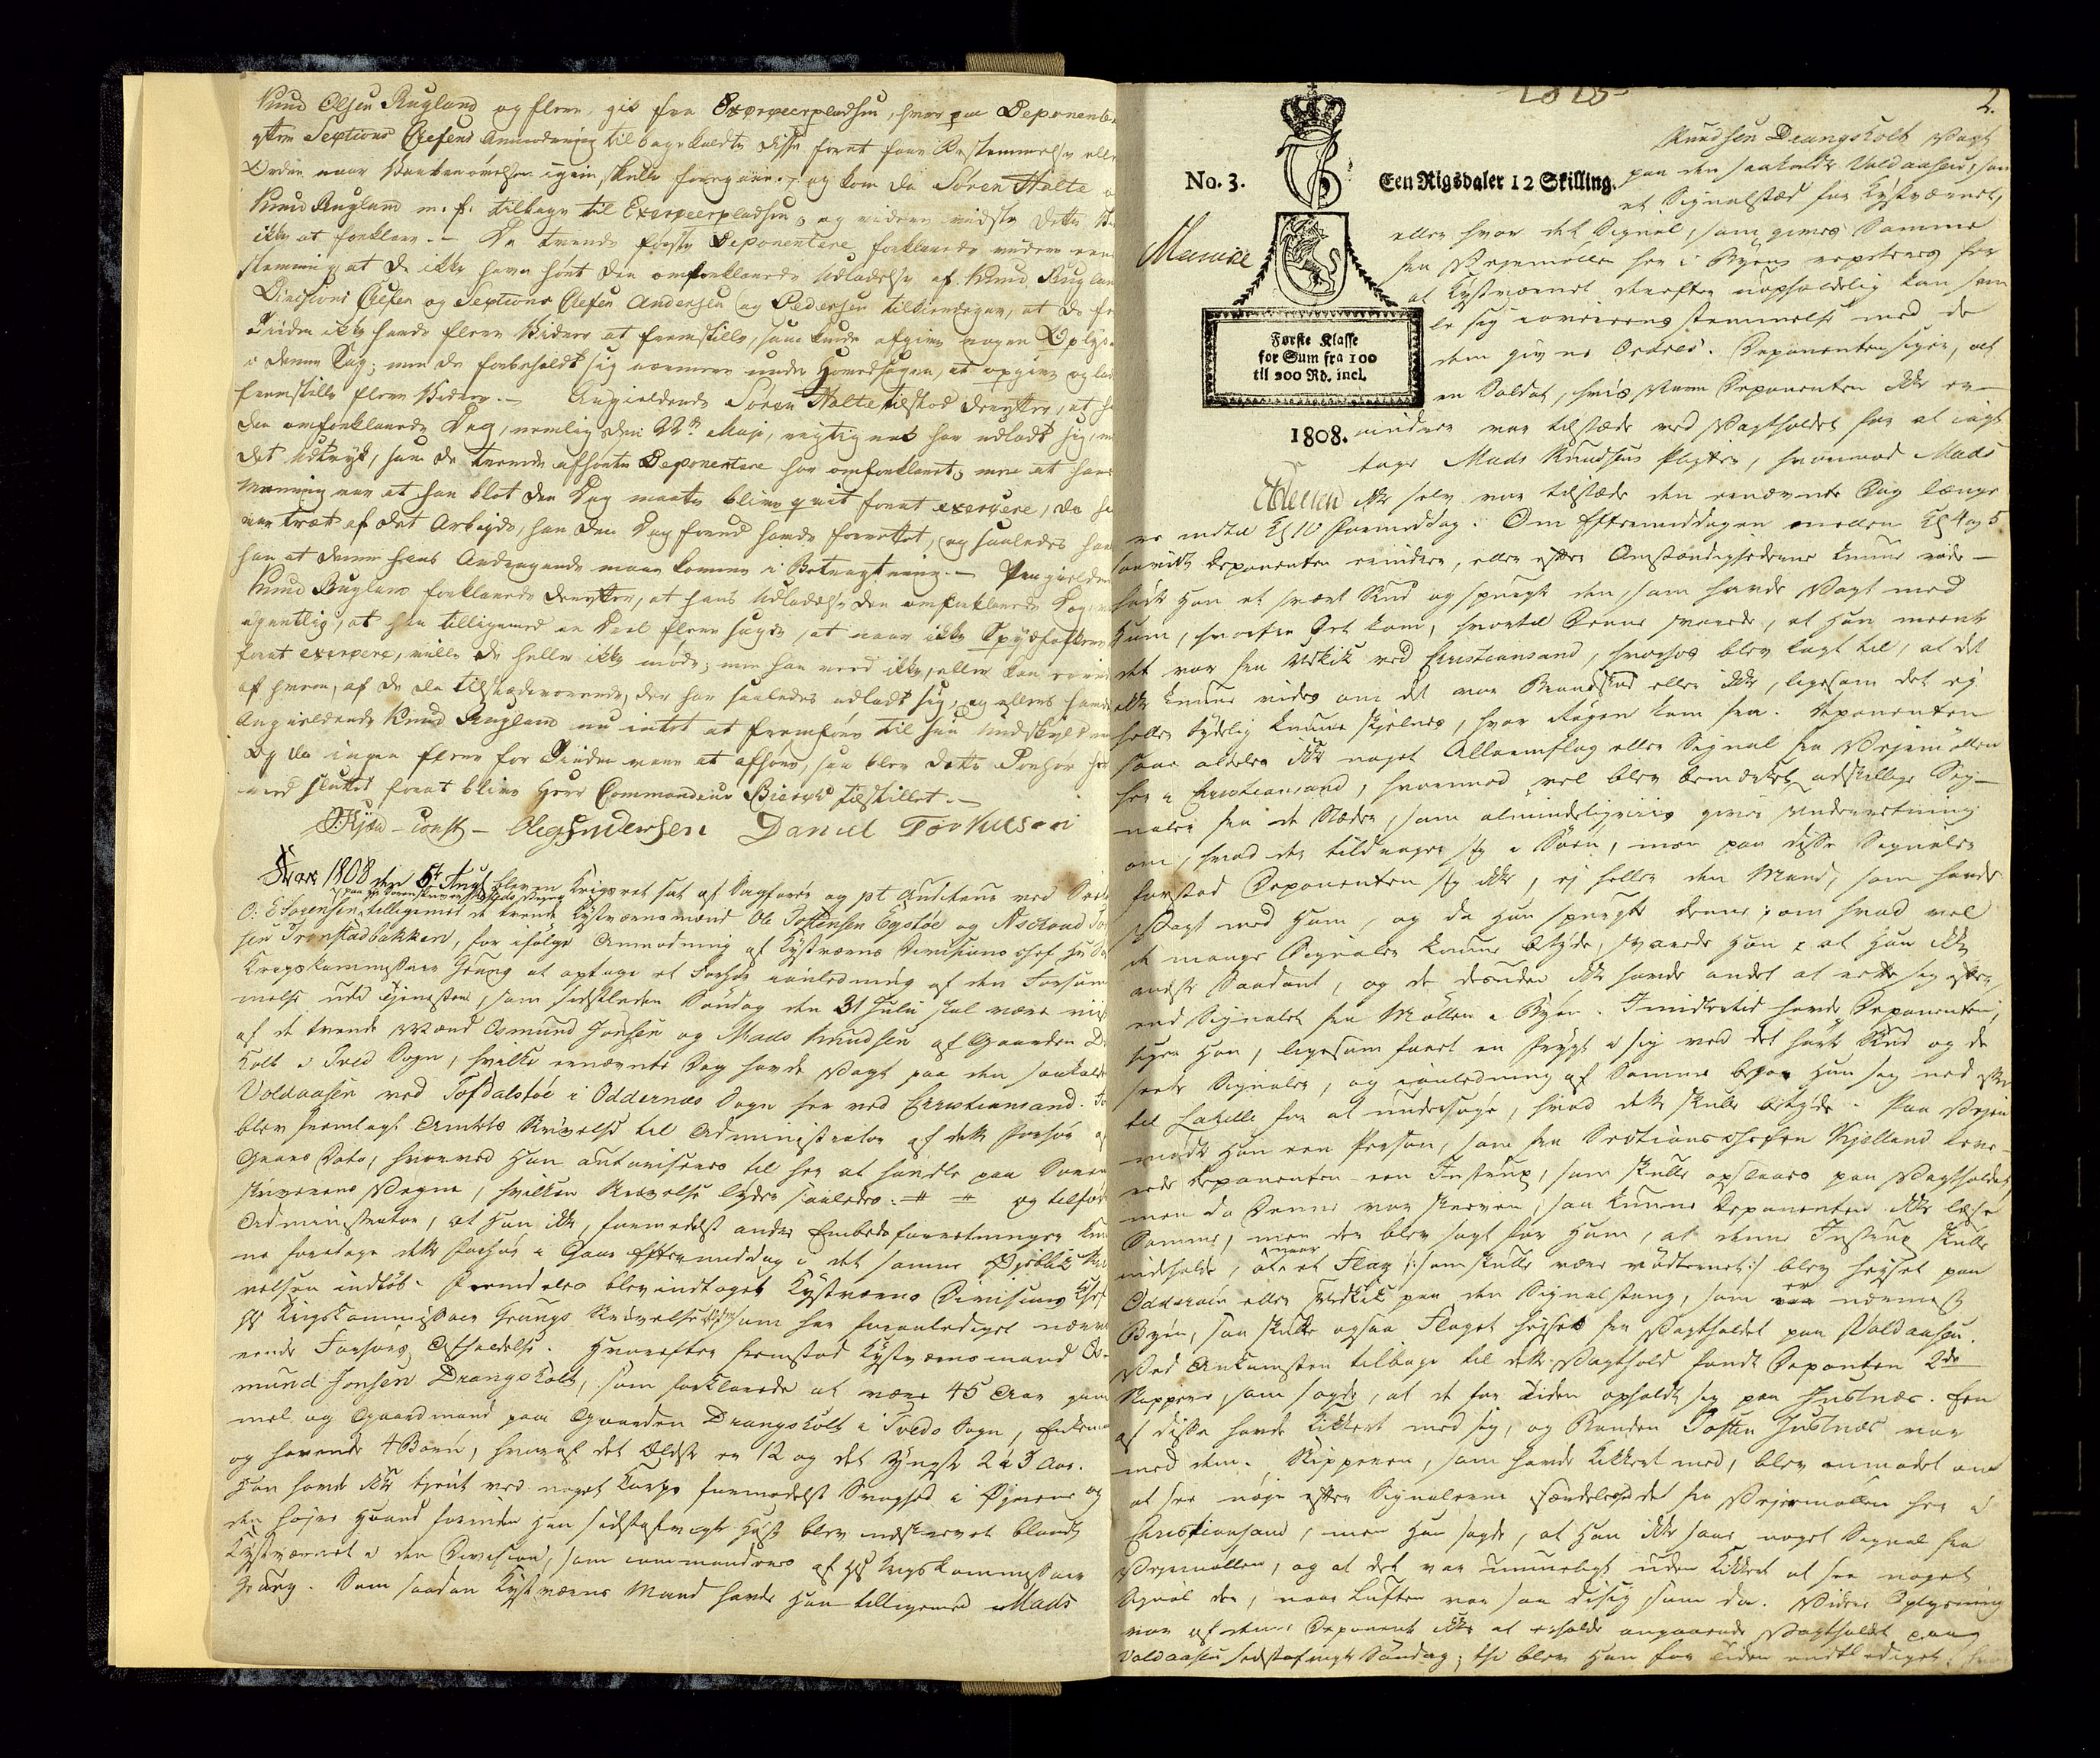 Knud Olsen Rugland og flere, gik fra Exerceerpladsen, hvor paa Deponente
efter Sections Chefens Anmodning tilbagekaldte disse forat faae Bestemmelse eller
Ordre naar Vaabenøvelsen igien skulle foregaae, og kom da Søren Halte
Knud Rugland m. fl. tilbage til Exerceerpladsen, og videre vidste dette
ikke at forklare. — De tvende første Deponentere forklarede videre een
stemmig at de ikke have hørt den omforklarede Udladelse af Knud Rugland
Divisions Chefen og Sections Chefen Andersen og Pedersen tilkiendegav, at de for
Tiiden ikke havde flere Vidner at fremstille, som kunde afgive nogen Oplys-
i denne Sag; men de forbeholdt sig nærmere under Hovedsagen, at opgive og lade
fremstille flere Vidner. — Angieldende Søren Halte tilstod derefter, at h
den omforklarede Dag, nemlig den 22de Maji, rigtignok har udladt sig, m
det Udtryk, som de tvende afhørte Deponentere har omforklaret; men at hans
Meening var at han blot den Dag maatte blive qvit forat exersere, da h
var træt af det Arbeyde, han den Dag forud havde forrettet, og saaledes haa
han at denne hans Andragende maae komme i Betragtning. — Angieldende
Knud Rugland forklarede derefter, at hans Udladelse den omforklarede Dag, v
egentlig, at han tilligemed en Deel flere sagde, at naar ikke Spydfolkene
forat exersere, ville de heller ikke møde; men han veed ikke, eller kan erind
af hvem, af de da tilstædeværende, der har saaledes udladt sig, og ellers havde
Angieldende Knud Rugland nu intet at fremføre til sin Undskyldning
Og da ingen flere for Tiiden vare at afhøre, saa blev dette Forhør her
med sluttet forat blive Herr Commandeur Bierch tilstillet. —
Kjær – const – Oleg Andersen Daniel Torkilsen
Aar 1808 den 6te Augl blev en Krigsret sat af Sagfører og pt Auditeur ved Søe
paa Sorenskriver Vegne
O: E Sørensen tilligemed de tvende Kystværnsmænd Ole Tostensen Egstøe og Asland To
sen Tronstadbakken, for ifølge Anmodning af Kystværns Divisions Chef Hr
Krigskommissair Grung at optage et Forhør i anledning af den Forsøm
melse udi Tjenesten, som sidstleden Søndag den 31 Julii skal være viist
af de tvende Mænd Osmund Jonsen og Mads Knudsen af Gaarden D
kolt i Tved Sogn, hvilke ernævnte Dag havde Vagt paa den saakaldte
Voldaasen ved Tofdalsføe i Oddernæs Sogn her ved Christiansand.
blev fremlagt Amtets Skrivelse til Administrator af dette Forhør af
Gaars Dato, hvorved Han autoriseres til her at handle paa Soren
skriverens Vegne, hvilken Skrivelse lyder saaledes: # # og tilføi
Administrator, at Han ikke, formedelst andre Embedsforretninger kun
ne foretage dette Forhør i Gaar Eftermiddag i det samme Øjeblik Skri
velsen indløb. Fremdeles blev indtaget Kystværns Divisions Chef
Hr Krigskommissair Grungs Skrivelse som har foranlediget nærvæ
rende Forhørs Afholdelse. Hvorefter fremstod Kystværnsmand Os-
mund Jonsen Drangsholt, som forklarede at være 45 Aar gam
mel og Gaardmand paa Gaarden Drangsholt i Tveds Sogn, Enkemand
og havende 4 Børn, hvoraf det Ældste er 12 og det Yngste 2 à 3 Aar.
Han havde ikke tjent ved noget Korps formedelst Svaghed i Øjnene og
den højre Haand førinden Han sidstafvigte Høst blev indskrevet blandt
Kystværnet i den Division, som commanderes af Hr Krigskommissair
Grung. Som saadan Kystværns Mand havde Han tilligemed Mads
1808
2.
No. 3.
Een Rigsdaler 12 Skilling.
Første Klasse
for Sum fra 100
til 200 Rd. incl.
1808.
Knudsen Drangsholt Vagt
paa den saakaldte Voldaasen, som
et Signalsted for Kystværnet,
eller hvor det Signal, som gives Samme
fra Vejrmøllen her i Byen repeteres for
at Kystværnet derefter uopholdelig kan sam
le sig i overensstemmelse med de
dem givne Ordres. Deponenten siger, at
en Soldat, hvis Navn Deponenten ikke er-
indrer var tilstæde ved Vagtholdet for at iagt
tage Mads Knudsens Pligter, hvorimod Mads
ikke selv var tilstæde den ernævnte Dag længe
re indtil Kl 10 Formiddag. Om Eftermiddagen mellem Kl 4 og 5
saavidt Deponenten erindrer, eller efter Omstændighederne kunne vide —
hørte Han et svært Skud og spurgte den som havde Vagt med
Ham, hvorfra Det kom, hvortil Denne svarede, at Han meente
det var fra Udkik ved Christiansand, hvorhos blev lagt til, at det
ikke kunne vides om det var Brandskud eller ikke, ligesom det ej
heller tydelig kunne skjelnes, hvor Røgen kom fra. Deponenten
saae aldeles ikke noget Allarmflag eller Signal fra Vejrmøllen
her i Christiansand, hvorimod vel blev bemærket adskillige Sig-
naler fra de Stæder, som almindeligviis giver Underretning
om, hvad der tildrager sig i Søen, men paa disse Signaler
forstod Deponenten sig ikke, ej heller den Mand, som havde
Vagt med Ham, og da Han spurgte denne: om hvad vel
de mange Signaler kunne betyde, svarede Han: at Han ikke
vidste Saadant, og de desuden ikke havde andet at rette sig efter,
end Signalet fra Møllen i Byen. Imidlertid havde Deponenten,
siger Han, ligesom faaet en Frygt i sig ved det hørte Skud og de
seete Signaler, og i anledning af Samme begav Han sig ned
til Lahelle for at undersøge, hvad dette skulle betyde. Paa Vejen
mødte Han een Person, som fra Sectionschefen Kjelland leve-
rede Deponenten een Instrux, som skulle opslaaes paa Vagtholdet,
men da Denne var skreven, saa kunne Deponenten ikke læse
Samme, men der blev sagt for Ham, at denne Instrux skulle
indholde, at naar et Flag /: som skulle være rødternet :/ blev heiset paa
Odderøen eller Udkik paa den Signalstang, som er nærmest
Byen, saa skulle ogsaa Flaget heises fra Vagtholdet paa Voldaasen.
Ved Ankomsten tilbage til dette Vagthold fandt Deponten 2de
Skippere, som sagde, at de for Tiden opholdt sig paa Justnæs. Een
af disse havde Kikkert med sig, og Bonden Tosten Justnæs var
med dem. Skipperen, som havde Kikkert med, blev anmodet om
at see nøje efter Signalerne særdeles det fra Vejrmøllen her i
Christiansand, men Han sagde, at Han ikke saae noget Signal fra
Vejrmøllen, og at det var umueligt uden Kikkert at see noget
Signal der, naar Luften var saa disig som da. Videre Oplysning
var af denne Deponent ikke at erholde angaaende Vagtholdet paa
Voldaasen sidstafvigte Søndag; thi blev Han for Tiden entlediget.